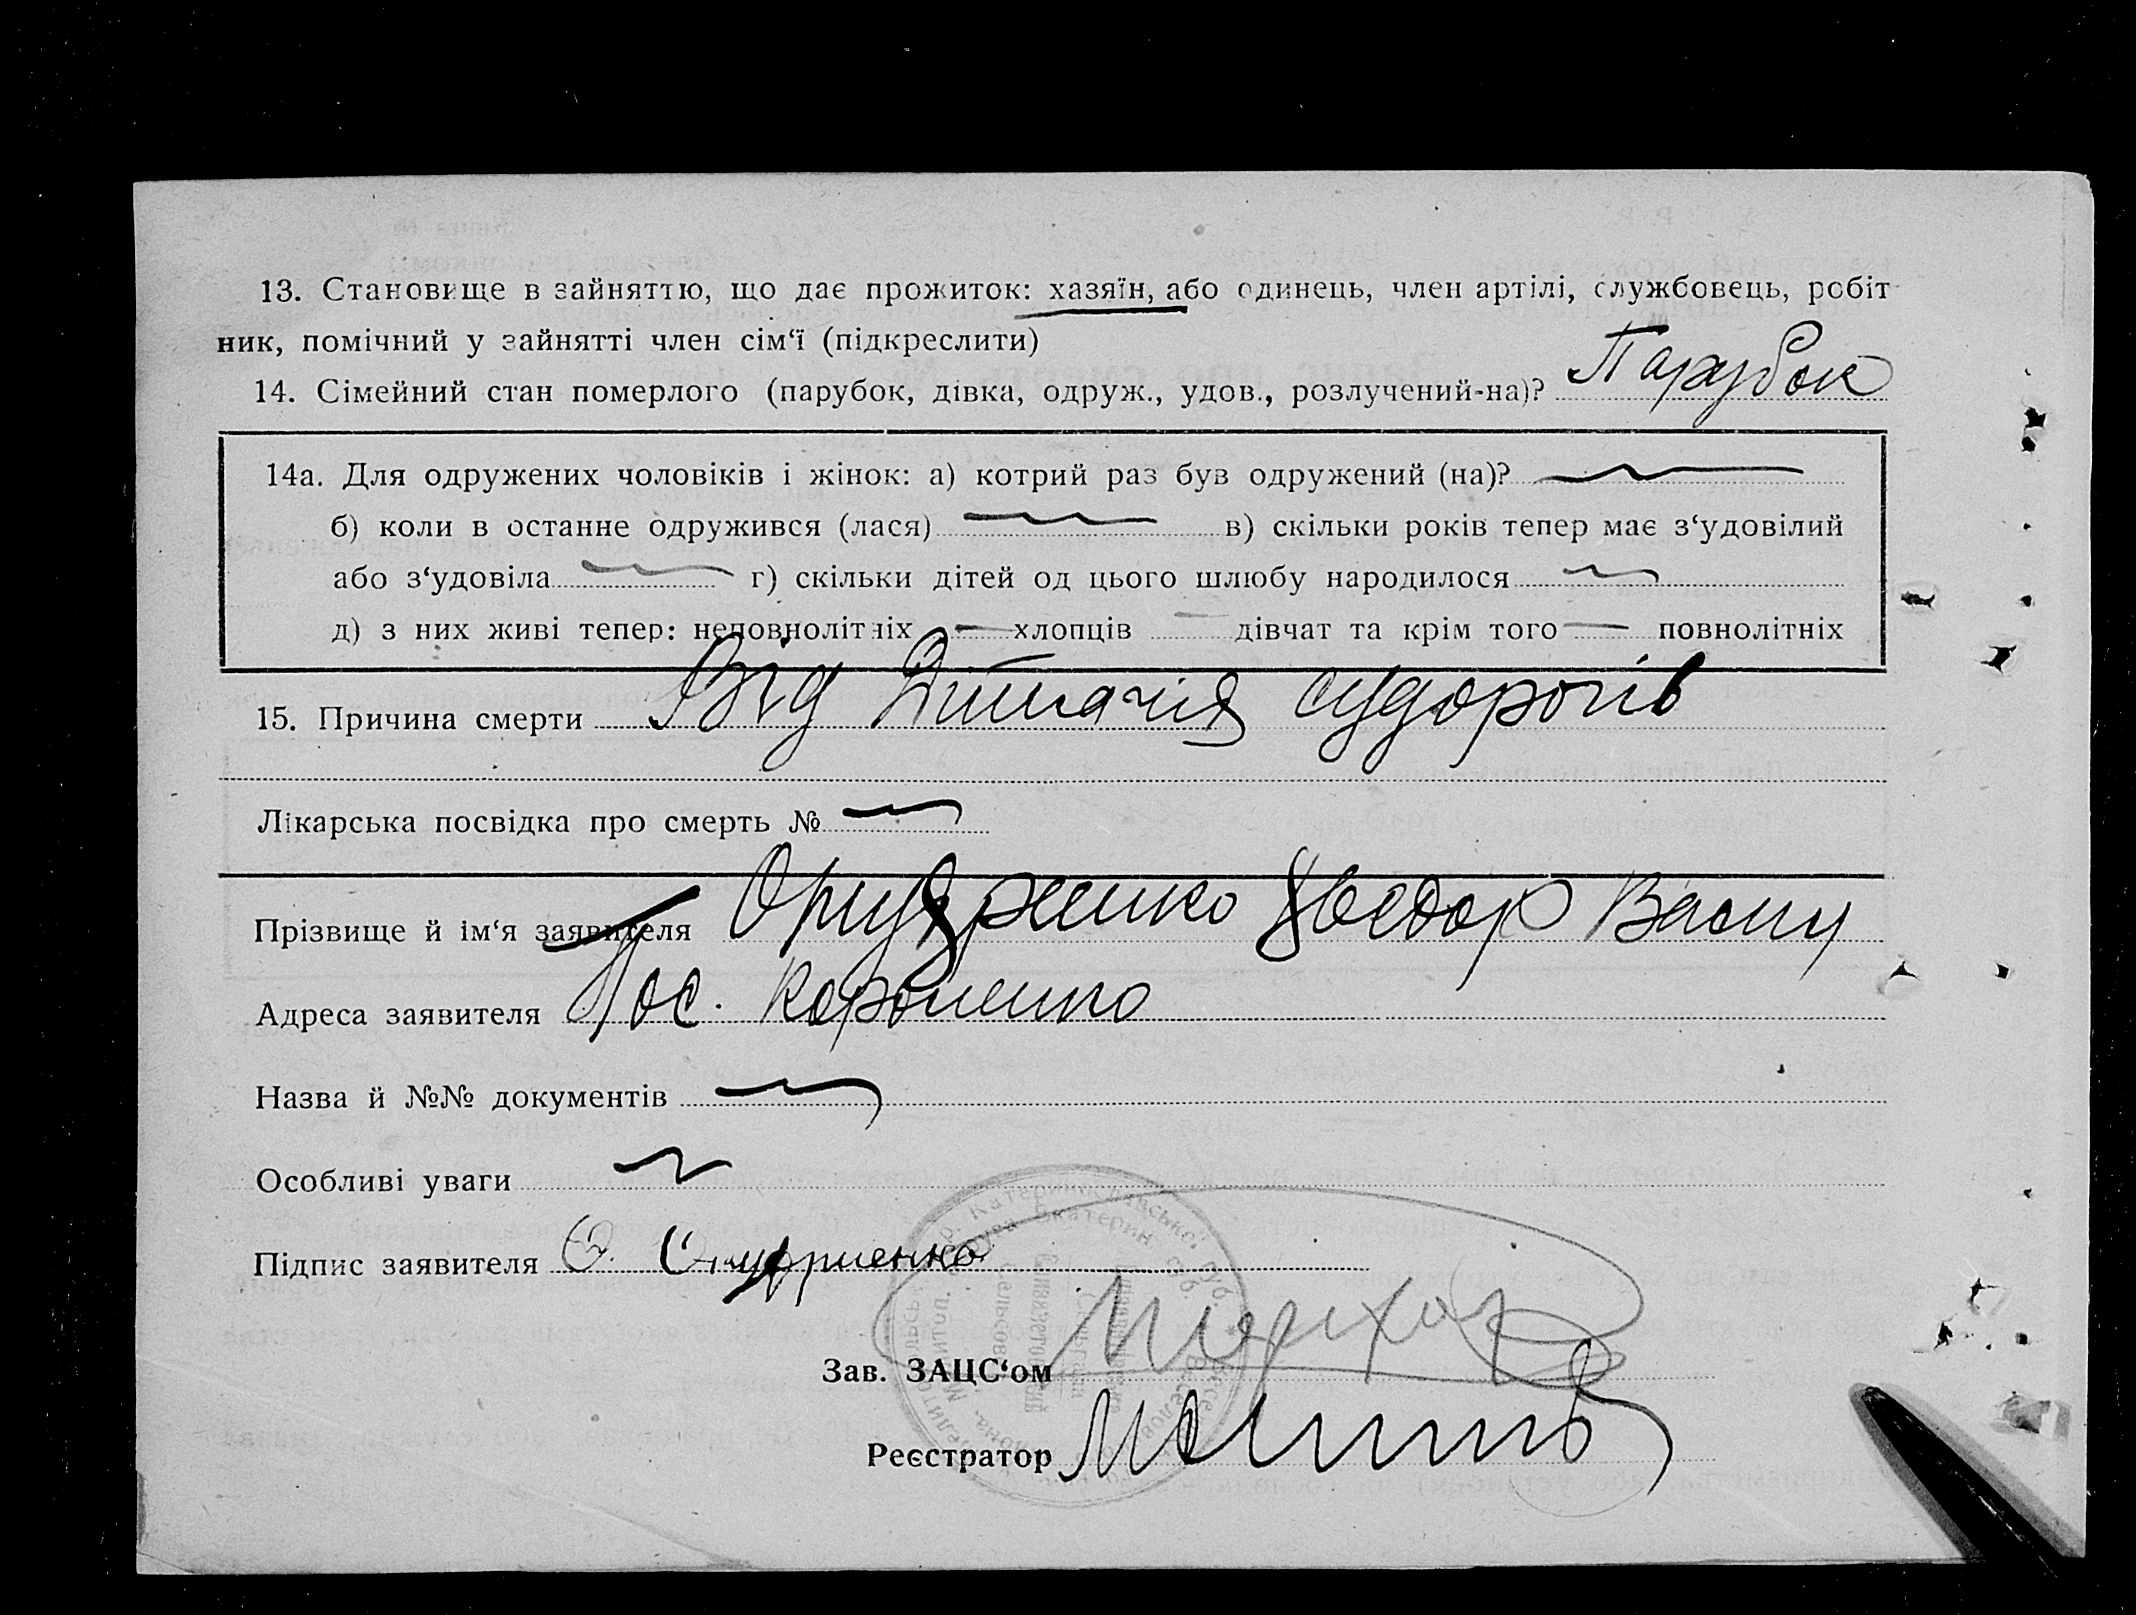 13. Становище в зайняттю, що дає прожиток: хазяїн, або одинець, член артілі, службовець, робіт
ник, помічний у зайнятті член сім‘ї (підкреслити)
14. Сімейний стан померлого (парубок, дівка, одруж., удов., розлучений-на)? Парубок
14а. Для одружених чоловіків і жінок: а) котрий раз був одружений (на)?
б) коли в останне одружився (лася) в) скільки років тепер має з‘удовілий
або з‘удовіла г) скільки дітей од цього шлюбу народилося
д) з них живі тепер: неповнолітніх — хлопців — дівчат та крім того — повнолітніх
15. Причина смерти Від Дитячія судорогів
Лікарська посвідка про смерть №
Прізвище й ім‘я заявителя Васил
Адреса заявителя Пос.
Назва й №№ документів
Особливі уваги
Підпис заявителя
Зав. ЗАЦС‘ом
Реєстратор